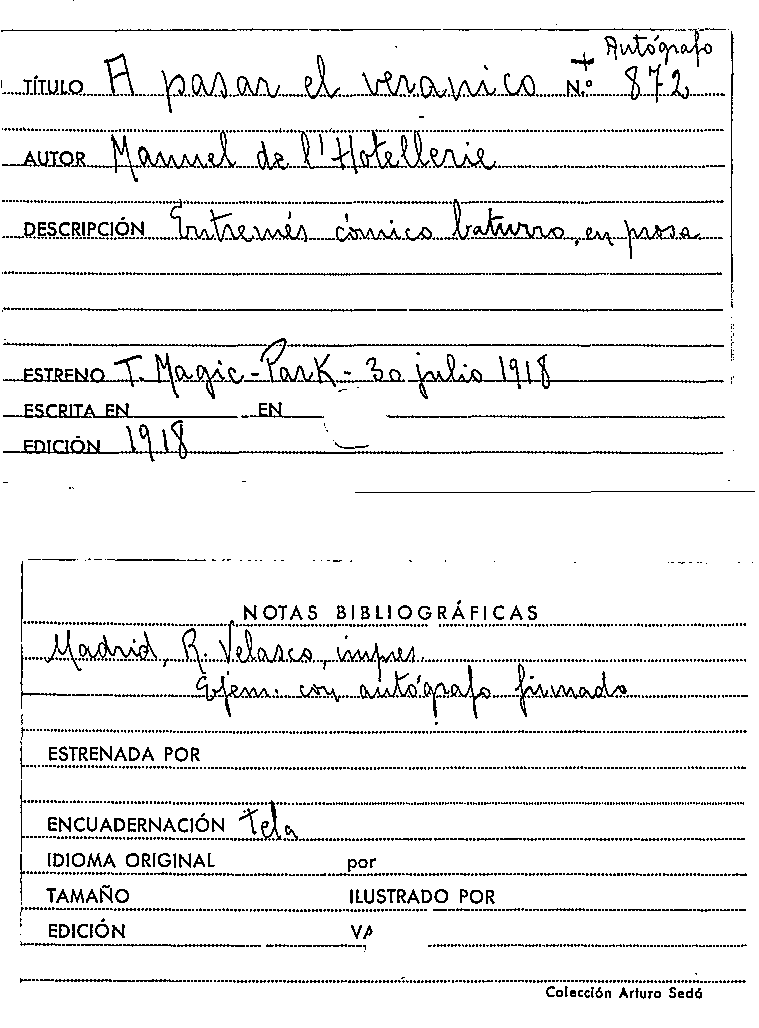 Autógrafo
TÍTULO A pasar el veranico + N.º 872
AUTOR Manuel de l'Hotellerie
DESCRIPCIÓN Entremés cómico baturro, en prosa
ESTRENO T. Magic-Park - 30 julio 1918
ESCRITA EN EN
EDICIÓN 1918
NOTAS BIBLIOGRÁFICAS
Madrid, R. Velasco, impres.
Ejem. con autógrafo firmado
ESTRENADA POR
ENCUADERNACIÓN Tela
IDIOMA ORIGINAL por
TAMAÑO ILUSTRADO POR
EDICIÓN VA
Colección Arturo Sedó